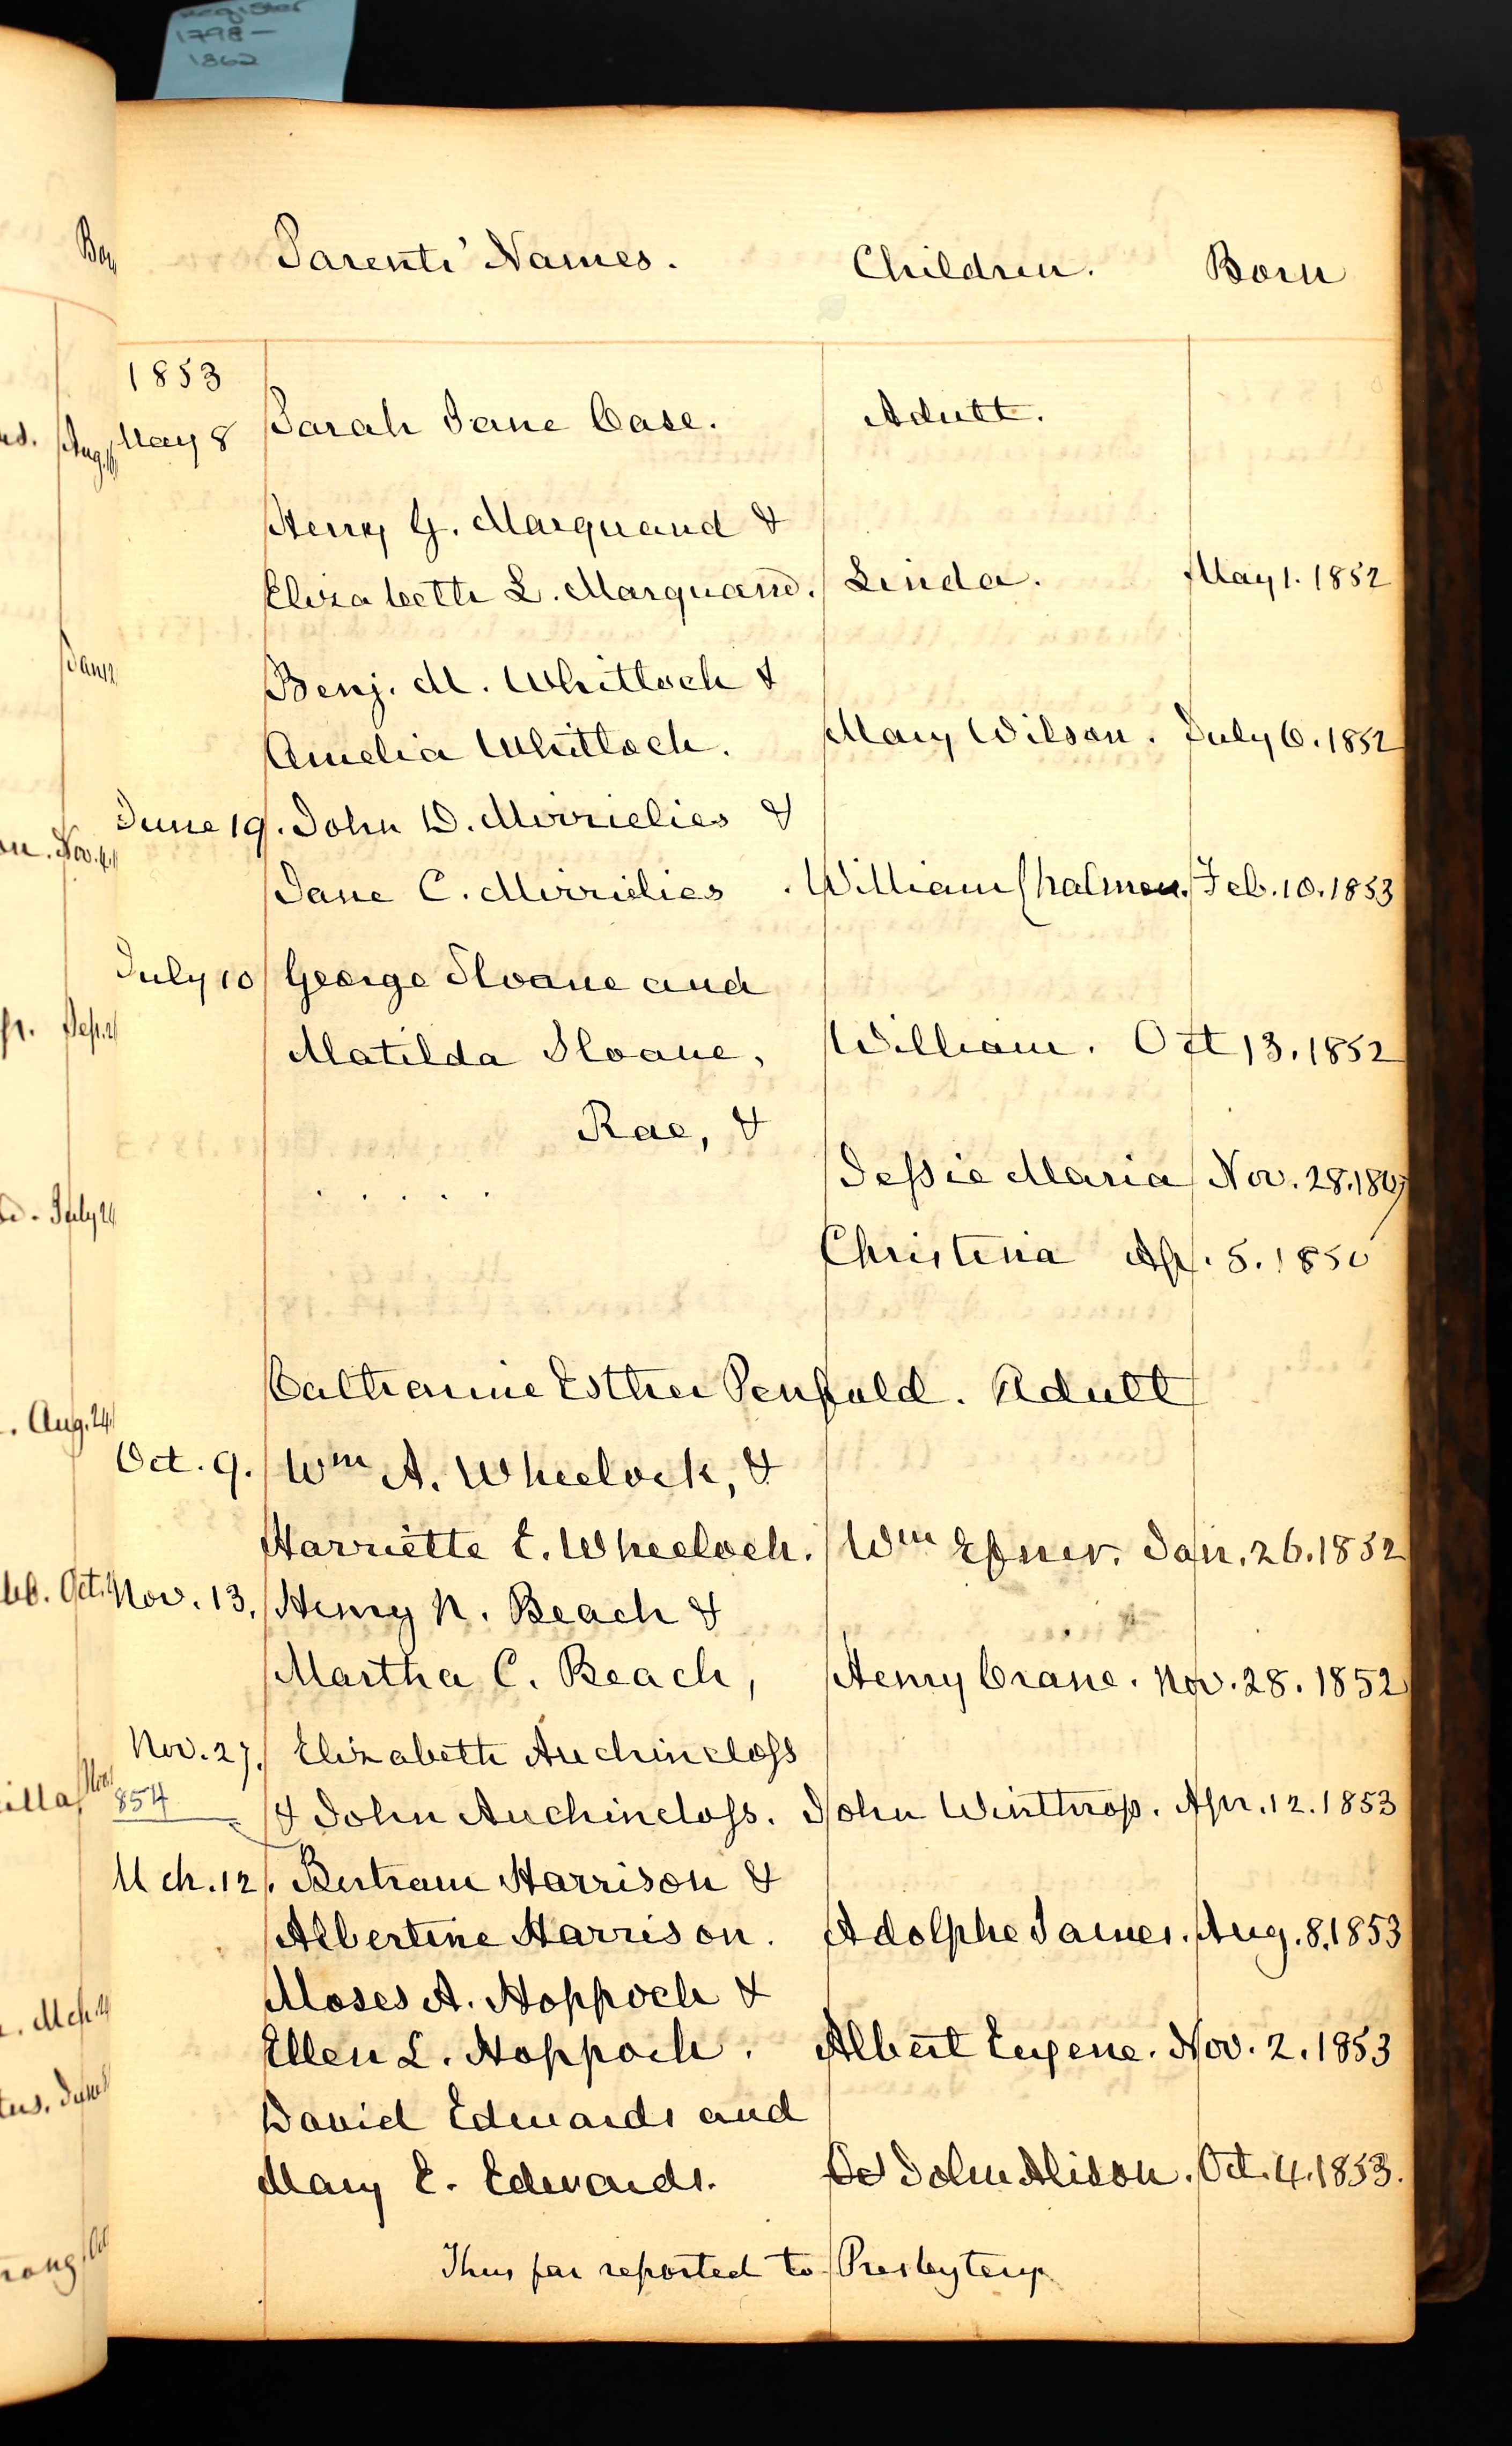 Register
1798 –
1862
Parents' Names. Children. Born
1853
May 8 Sarah Jane Case. Adult.
Henry G. Marquand &
Elizabeth L. Marquand. Linda. May 1. 1852
Benj. M. Whitlock &
Amelia Whitlock. Mary Wilson. July 6. 1852
June 19. John D. Mirrielies &
Jane C. Mirrielies . William Chalmers. Feb. 10. 1853
July 10 George Sloane and
Matilda Sloane, William. Oct 13. 1852
Rae, &
. . . . . Jessie Maria Nov. 28. 1847
Christina Ap. 5. 1850
Catharine Esther Penfold. Adult
Oct. 9. Wm A. Wheelock, &
Harriette E. Wheelock. Wm Jan. 26. 1852
Nov. 13. Henry N. Beach &
Martha C. Beach, Henry Crane. Nov. 28. 1852
Nov. 27. Elizabeth Auchincloss
854
& John Auchincloss. John Winthrop. Apr. 12. 1853
Mch. 12. Bertram Harrison &
Albertine Harrison. Adolphe James. Aug. 8. 1853
Moses A. Hoppock &
Ellen L. Hoppock. Albert Eugene. Nov. 2. 1853
David Edwards and
Mary E. Edwards. John Alison. Oct. 4. 1853.
Thus far reported to Presbytery